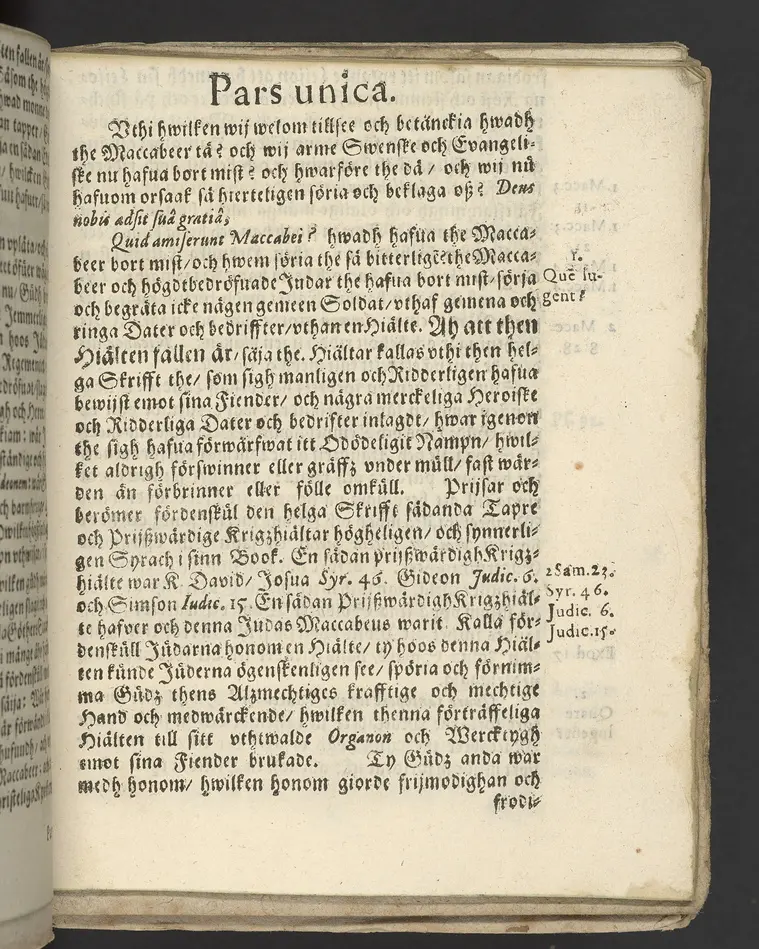 Pars unica.
Vthi hwilken wij welom tillsee och betänckia hwadh
the Maccabeer tå? och wij arme Swenske och Evangeli-
ske nu hafua bort mist? och hwarföre the då / och wij nû
hafuom orsaak så hierteligen söria och beklaga oß? Deus
nobis adsit suâ gratiâ;
Quid amiserunt Maccabei? hwadh hafua the Macca-
beer bort mist/ och hwem söria the så bitterligẽ? the Macca-
beer och högdtbedröfuade Judar the hafua bort mist/ sörja
och begråta icke någen gemeen Soldat/ vthaf gemena och
ringa Dater och bedriffter/ vthan en Hiälte. Ah att then
Hiälten fallen är/ säja the. Hiältar kallas vthi then hel-
ga Skrifft the/ som sigh manligen och Ridderligen hafua
bewijst emot sina Fiender/ och några merckeliga Heroiske
och Ridderliga Dater och bedrifter inlagdt/ hwar igenon
the sigh hafua förwärfwat itt Odödeligit Nampn/ hwil-
ket aldrigh förswinner eller gräffz vnder mull/ fast wär-
den än förbrinner eller fölle omkull. Prijsar och
berömer fördenskul den helga Skrifft sådanda Tapre
och Prijßwärdige Krigzhiältar högheligen/ och synnerli-
gen Syrach i sinn Book. En sådan prijßwärdigh Krigz-
hiälte war K. David/ Josua Syr. 46. Gideon Judic. 6.
och Simson Iudic. 15. En sådan Prijßwärdigh Krigzhiäl-
te hafver och denna Judas Maccabeus warit. Kalla för-
denskull Jüdarna honom en Hiälte/ ty hoos denna Hiäl-
ten kunde Jüderna ögenskenligen see/ spöria och förnim-
ma Gûdz thens Alzmechtiges krafftige och mechtige
Hand och medwärckende/ hwilken thenna förträffeliga
Hiälten till sitt vthwalde Organon och Wercktygh
emot sina Fiender brukade. Ty Gûdz anda war
medh honom/ hwilken honom giorde frijmodighan och
frodi-
1.
Quẽ lu-
gent?
2 Sam. 23.
Syr. 46.
Judic. 6.
Judic. 15.